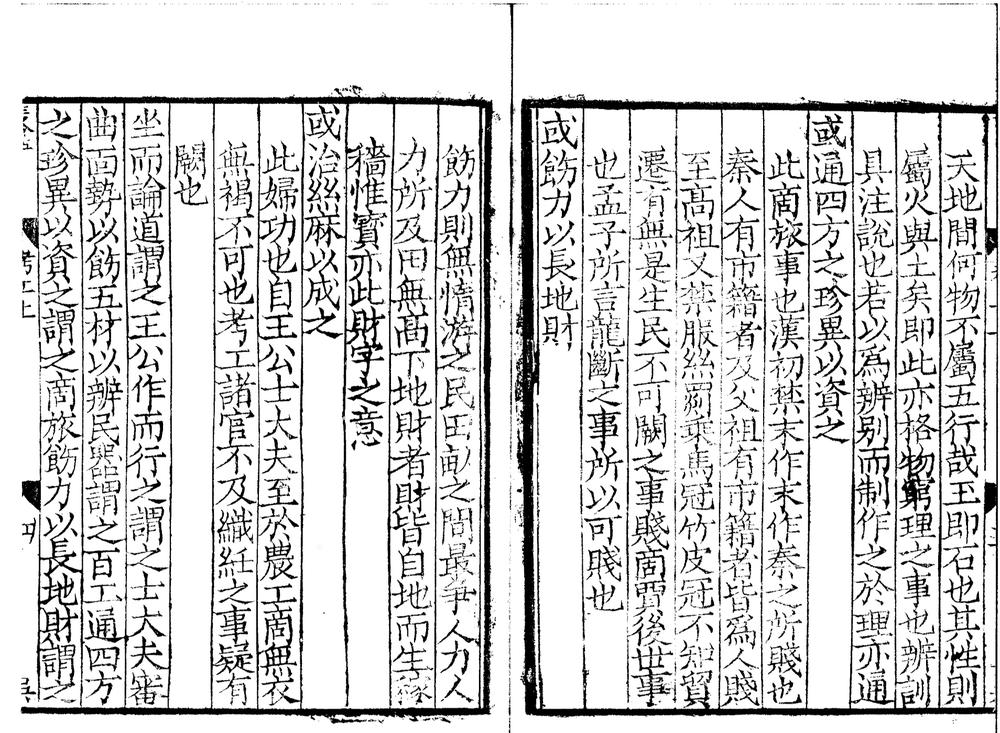 天地間何物不屬五行哉玉即石也其性則
屬火與土矣即此亦格物窮理之事也辨訓
具注說也若以爲辨别而制作之於理亦通
或通四方之珍異以資之
此啇旅事也漢初禁末作末作秦之所賤也
秦人有市籍者及父祖有市籍者皆爲人賤
至髙祖又禁服絲罽乗馬冠竹皮冠不知貿
遷有無是生民不可闕之事賤啇賈後丗事
也孟子所言龍斷之事所以可賤也
或飭力以長地財
飭力則無惰游之民田畝之間最爭人力人
力所及田無髙下地財者財皆自地而生稼
穡惟寳亦此財字之意
或治絲麻以成之
此婦功也自王公士大夫至於農工啇無衣
無褐不可也考工諸官不及織紝之事疑有
闕也
坐而論道謂之王公作而行之謂之士大夫審
曲面勢以飭五材以辨民器謂之百工通四方
之珍異以資之謂之啇旅飭力以長地財謂之
考工上
四